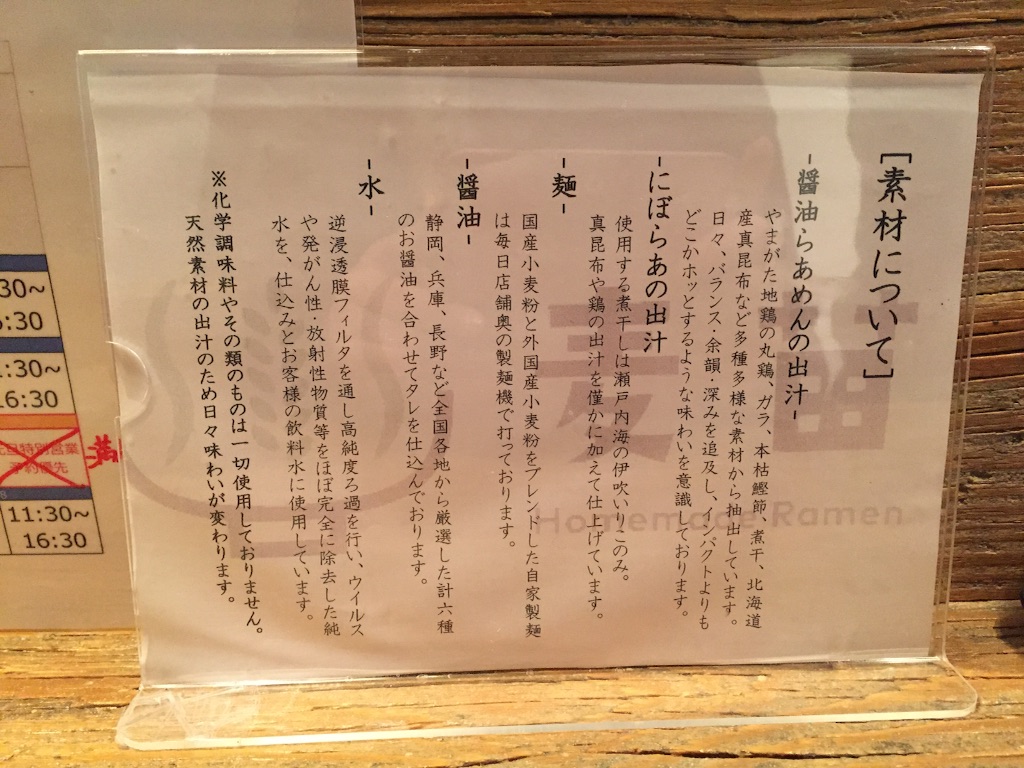 [素材について]
-醤油らあめんの出汁-
やまがた地鶏の丸鶏、ガラ、本枯鰹節、煮干、北海道
産真昆布など多種多様な素材から抽出しています。
日々、バランス・余韻・深みを追及し、インパクトよりも
どこかホッとするような味わいを意識しております。
-にぼらあの出汁
使用する煮干しは瀬戸内海の伊吹いりこのみ。
真昆布や鶏の出汁を僅かに加えて仕上げています。
-麺-
国産小麦粉と外国産小麦粉をブレンドした自家製麺
は毎日店舗奥の製麺機で打っております。
-醤油-
静岡、兵庫、長野など全国各地から厳選した計六種
のお醤油を合わせてタレを仕込んでおります。
-水-
逆浸透膜フィルタを通し高純度ろ過を行い、ウイルス
や発がん性・放射性物質等をほぼ完全に除去した純
水を、仕込みとお客様の飲料水に使用しています。
※化学調味料やその類のものは一切使用しておりません。
天然素材の出汁のため日々味わいが変わります。
Homemade Ramen
30~
:30
1:30~
16:30
11:30~
16:30